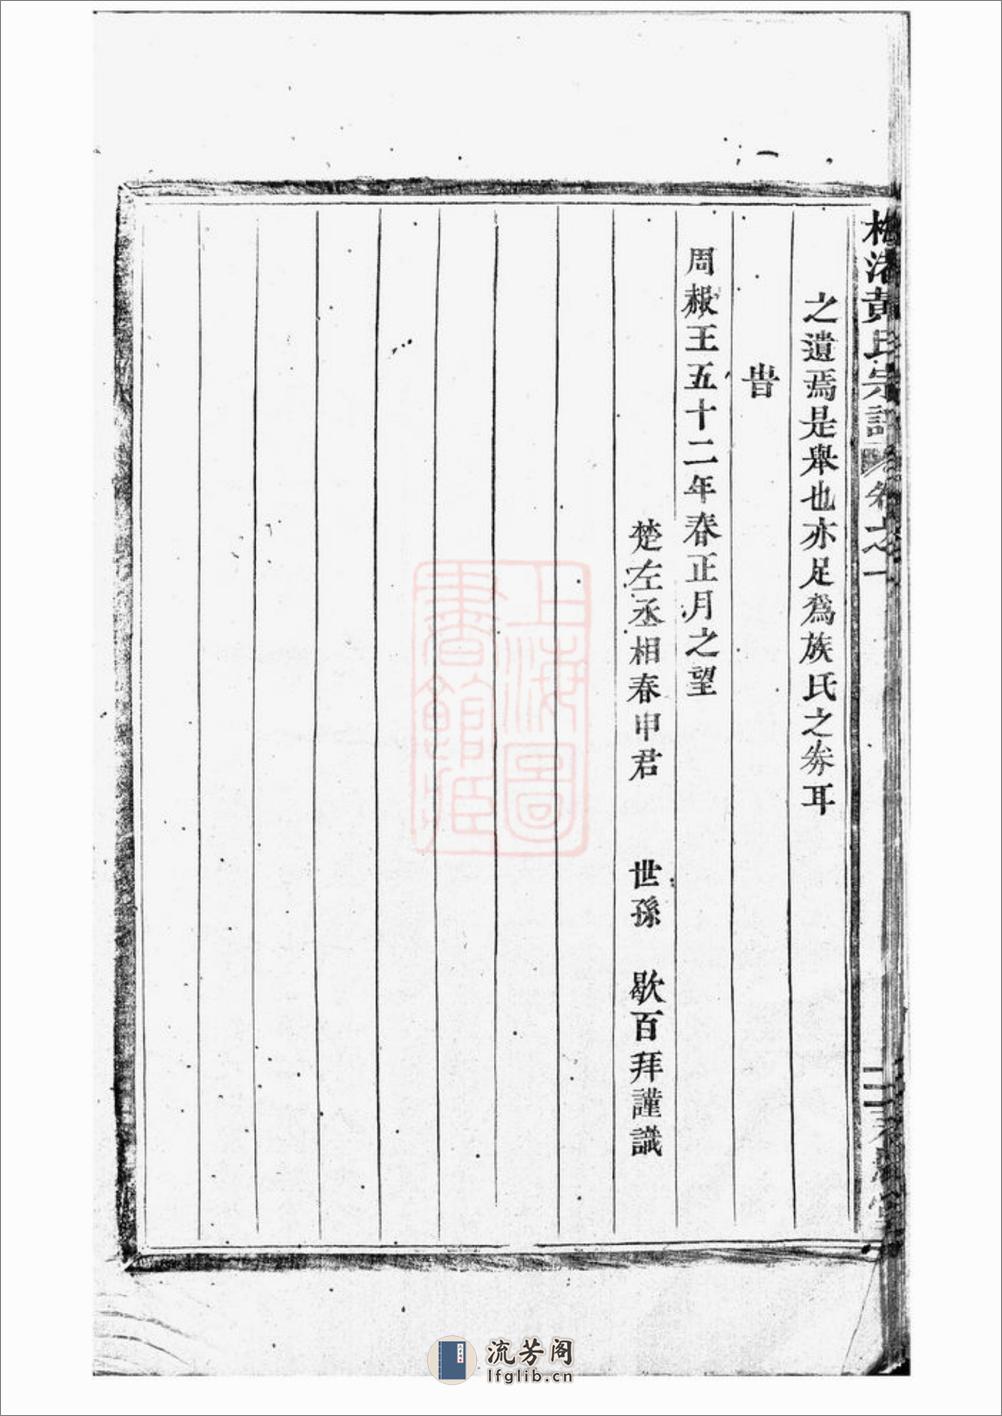 之遺焉是舉也亦足爲族氏之劵耳
旹
周赧王五十二年春正月之望
楚左丞相春申君 世孫 歇百拜謹識
黃氏宗譜 卷之一
上海圖書館藏
流芳阁
lfglib.cn